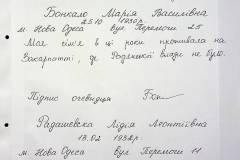 Бонкало Марія Василівна
25.10 1930 р.
м. Нова Одеса вул Перемоги 25
Моя сім'я в ці роки проживала на
Закарпатті, де Радянської влади не було.
Підпис очевидця Бон
Радашевська Лідія Леонтіївна
13.02 1932 р.
м. Нова Одеса вул Перемоги 11